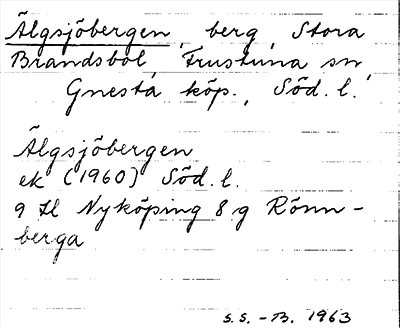 Älgsjöbergen, berg, Stora
Brandsbol, Frustuna sn,
Gnesta köp., Söd. l.
Älgsjöbergen
ek (1960) Söd. l.
9 H Nyköping 8 g Rönn-
berga
S.S. -B. 1963